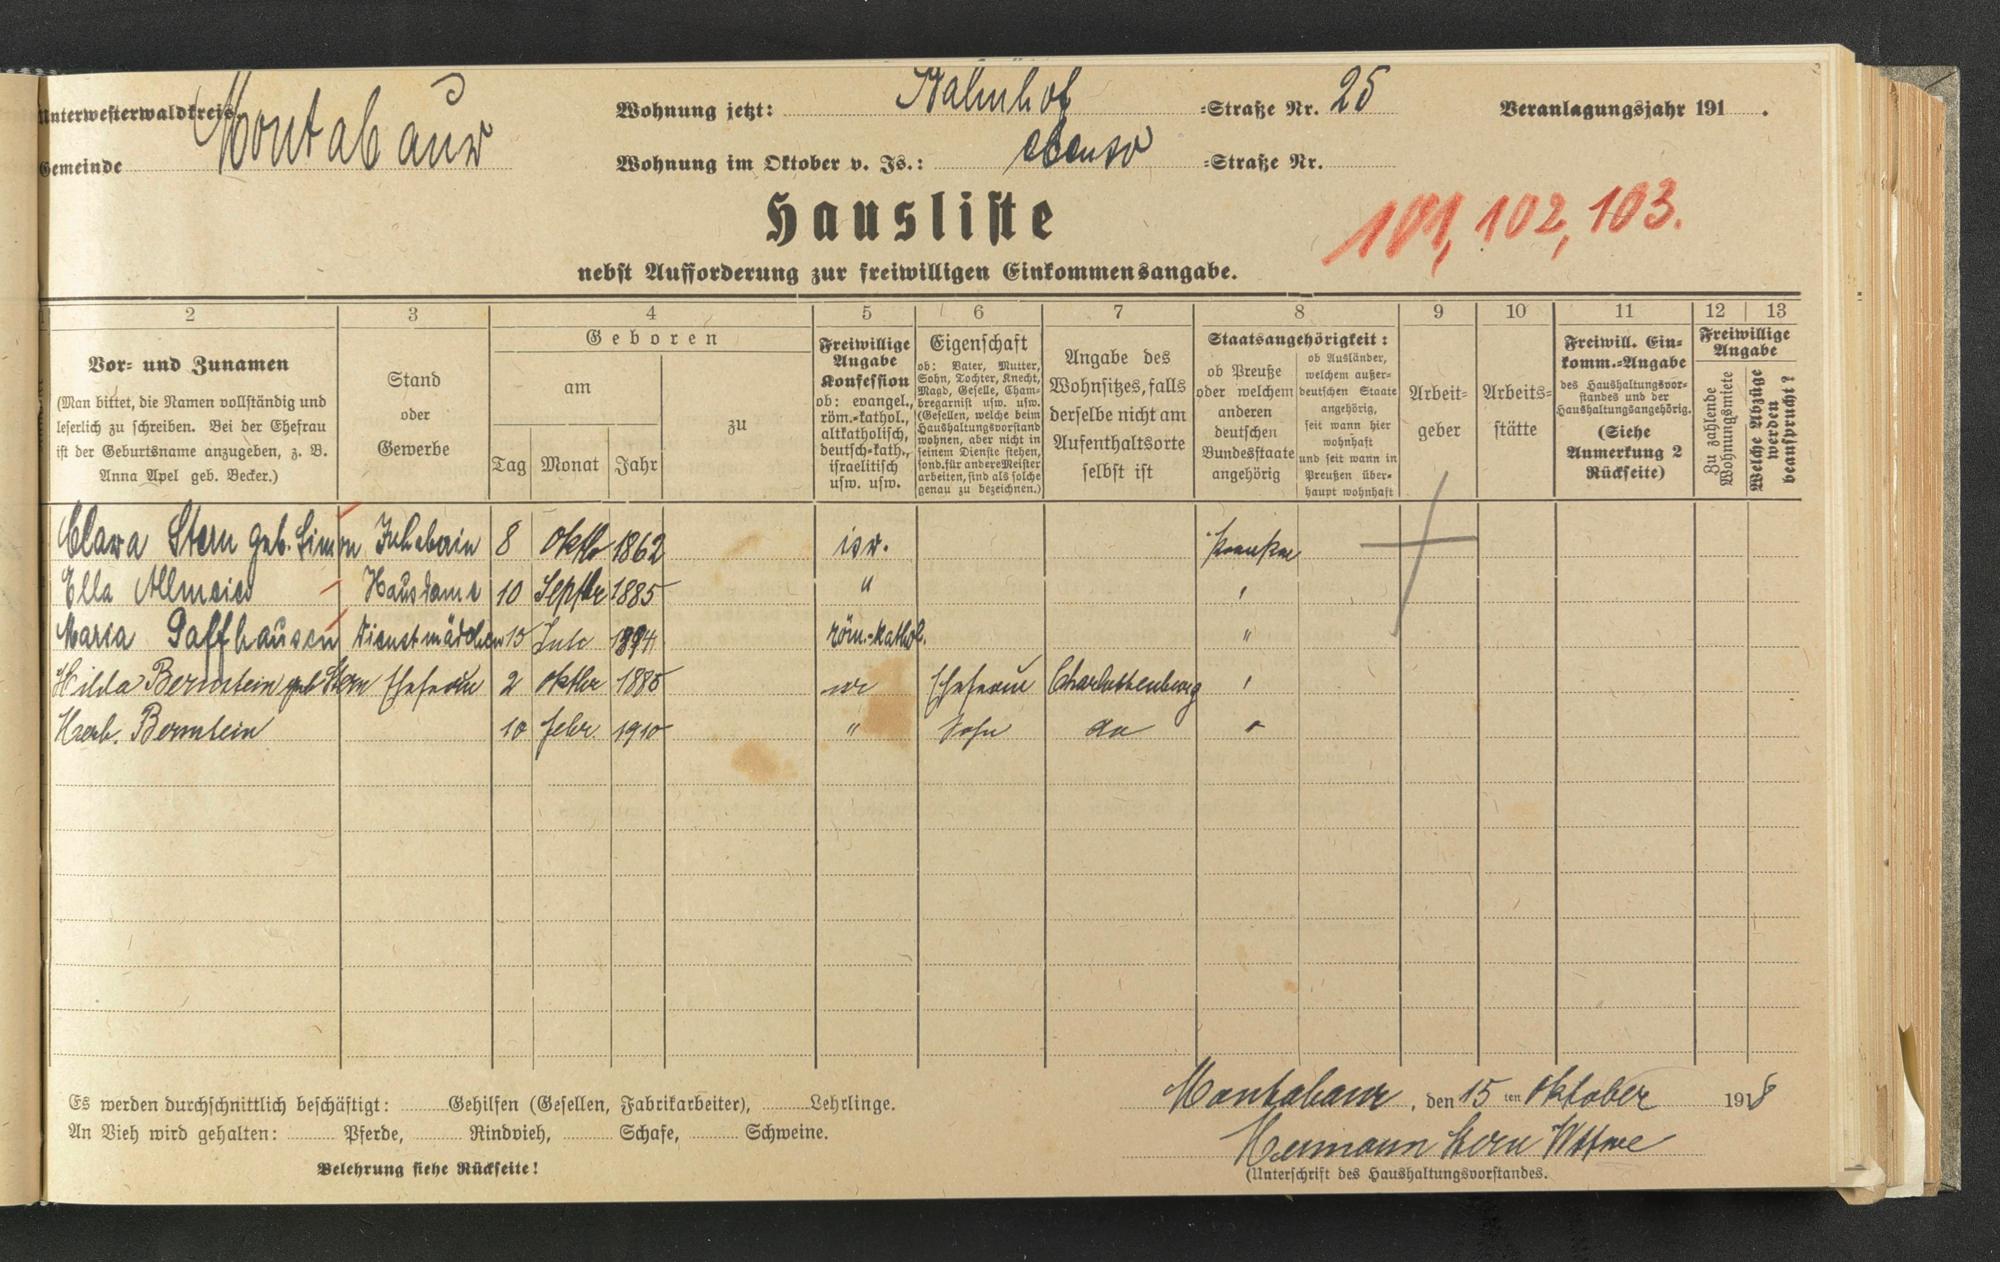 Unterwesterwaldkreis.
Montabaur
Gemeinde
Wohnung jetzt: Bahnhof =Straße Nr. 25
Wohnung im Oktober v. Js.: ebenso =Straße Nr.
Veranlagungsjahr 191 .
Hausliste
101, 102, 103.
nebst Aufforderung zur freiwilligen Einkommensangabe.
2 3 4 5 6 7 8 9 10 11 12 13
Vor- und Zunamen
(Man bittet, die Namen vollständig und
leserlich zu schreiben. Bei der Ehefrau
ist der Geburtsname anzugeben, z. B.
Anna Apel geb. Becker.)
Stand
oder
Gewerbe
Geboren
am
zu
Tag Monat Jahr
Freiwillige
Angabe
Konfession
ob: evangel.,
röm.-kathol.,
altkatholisch,
deutsch-kath.,
israelitisch
usw. usw.
Eigenschaft
ob: Vater, Mutter,
Sohn, Tochter, Knecht,
Magd, Geselle, Cham-
bregarnist usw. usw.
(Gesellen, welche beim
Haushaltungsvorstand
wohnen, aber nicht in
seinem Dienste stehen,
sond. für andere Meister
arbeiten, sind als solche
genau zu bezeichnen.)
Angabe des
Wohnsitzes, falls
derselbe nicht am
Aufenthaltsorte
selbst ist
Staatsangehörigkeit:
ob Preuße
oder welchem
anderen
deutschen
Bundesstaate
angehörig
ob Ausländer,
welchem außer-
deutschen Staate
angehörig,
seit wann hier
wohnhaft
und seit wann in
Preußen über-
haupt wohnhaft
Arbeit-
geber
Arbeits-
stätte
Freiwill. Ein-
komm.-Angabe
des Haushaltungsvor-
standes und der
Haushaltungsangehörig.
(Siehe
Anmerkung 2
Rückseite)
Freiwillige
Angabe
Zu zahlende
Wohnungsmiete
Welche Abzüge
werden
beansprucht?
Clara Stern geb. Simon Inhaberin 8 Oktbr 1862 isr.
Ella Allmeier Hausdame 10 Septbr 1885 "
Maria Paffhausen Dienstmädchen 13 Juli 1894 röm.-kathol. "
Hilda Bernstein geb Stern Ehefrau 2 Oktbr 1885 isr Ehefrau Charlottenburg
Herb. Bernstein 10 Febr 1910 " Sohn do
Es werden durchschnittlich beschäftigt: Gehilfen (Gesellen, Fabrikarbeiter), Lehrlinge.
An Vieh wird gehalten: Pferde, Rindvieh, Schafe, Schweine.
Belehrung siehe Rückseite!
Montabaur, den 15 ten Oktober 1918
Hermann Stern Wttwe
(Unterschrift des Haushaltungsvorstandes.